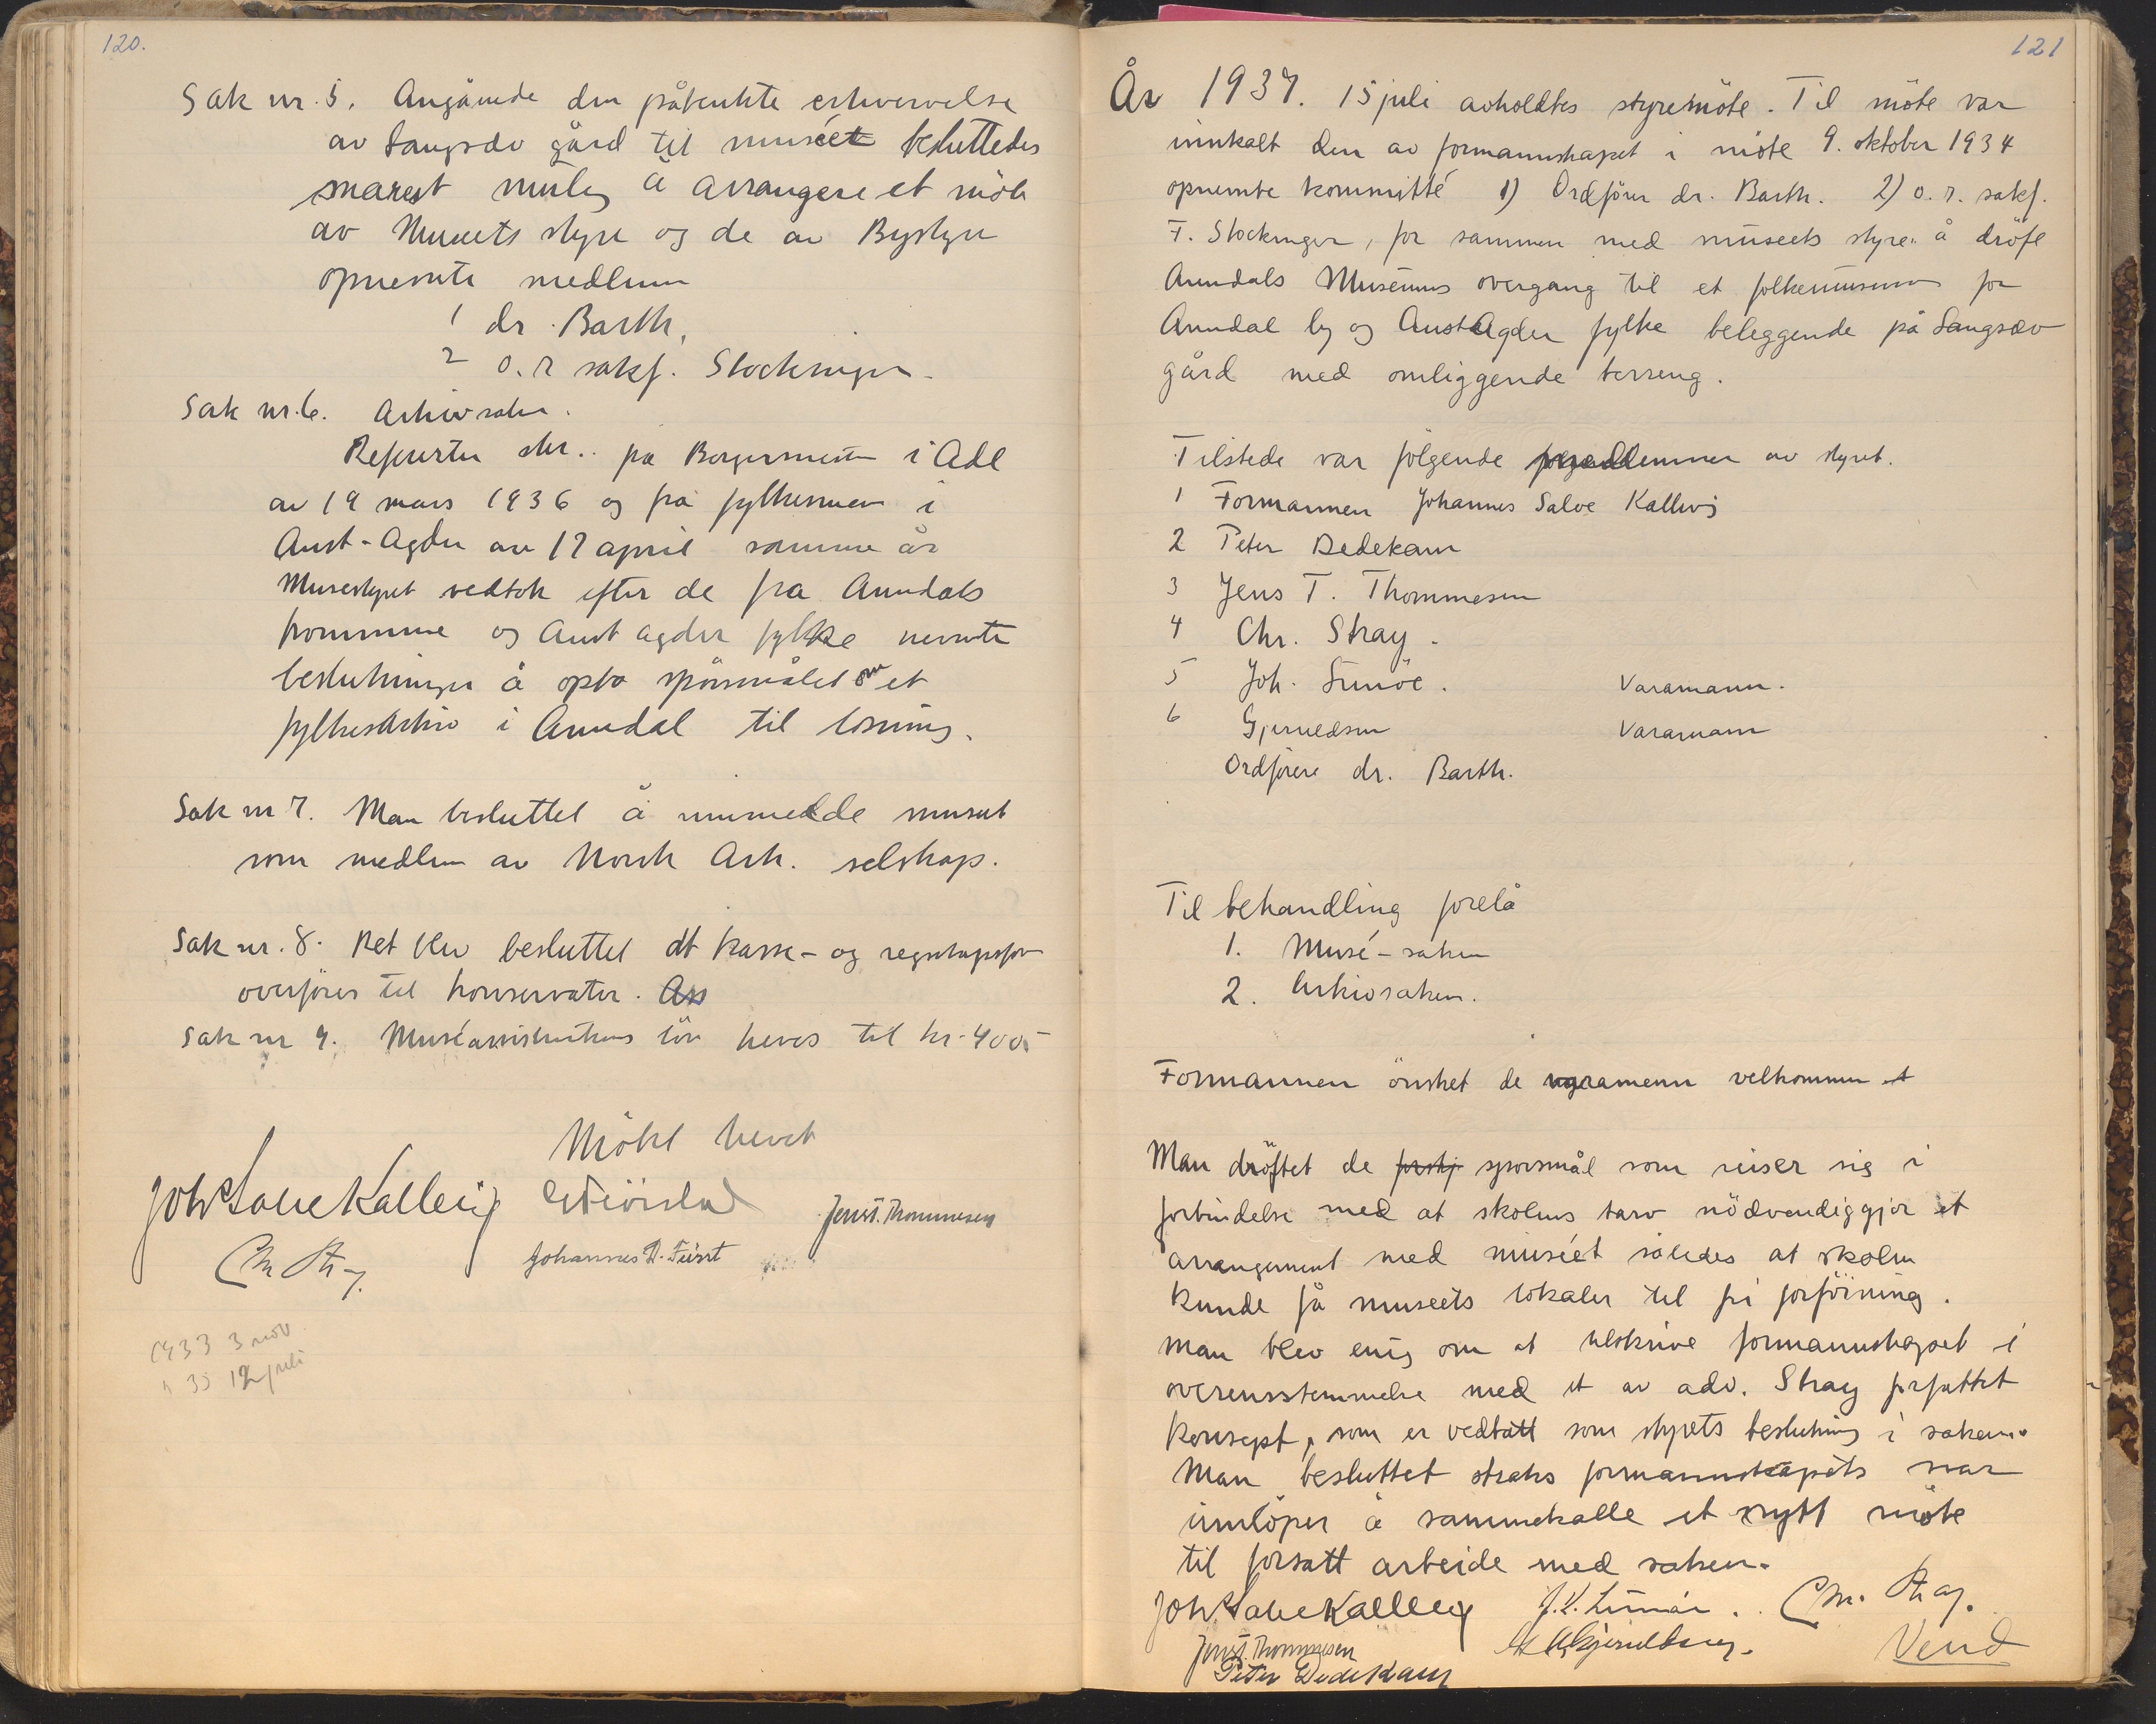 120.
Sak nr. 5. Angånede den påtenkte erhvervelse
av Langsæv gård til museét besluttedes
snarest mulig å arrangere et möte
av Museets styre og de av Bystyre
opnevnte medlem
1 dr. Barth.
2 o. r sakf. Stockinger.
Sak nr. 6. Arkivsaken.
Refererter skr.. fra Borgermester i Adl
av 19 mars 1936 og fra fylkesmen i
Aust-Agder av 17 april samme år
Musestyret vedtok efter de fra Arendals
kommune og Aust agder fylke nevnte
beslutninger å opta spörsmålet om et
fylkesArkiv i Arendal til lösning.
Sak nr 7. Man besluttet å innmelde museet
som medlem av Norsk Ark. selskap.
Sak nr. 8. Det blev besluttet at kasse- og regnskapsför
overföres til konservator.
Sak nr 9. Muséassistentens lön heves til kr. 400.-
Mötet hevet
Joh Salve Kallevig
Jens T. Thommesen
Chr Stray.
Johannes D. Fürst
1933 3 nov
" 35 12 juli
121
År 1937. 15 juli avholdtes styremöte. Til möte var
innkalt den av formannskapet i möte 9. oktober 1934
opnevnte kommitté 1) Ordförer dr. Barth. 2) o. r. sakf.
F. Stockinger, for sammen med museets styre å dröfte
Arendals Museums overgang til et folkemuseum for
Arendal by og Aust Agder fylke beleggende på Langsæv
gård med omliggende terreng.
Tilstede var fölgende medlemmer av styret.
1 Formannen Johannes Salve Kallevig
2 Peter Dedekam
3 Jens T. Thommesen
4 Chr. Stray.
5 Joh. Lunöe. Varamann.
6 Gjeruldsen Varamann
Ordförer dr. Barth.
Til behandling forelå
1. Musé-saken
2. Arkivsaken.
Formannen önsket de varamenn velkommen
Man dröftet de forskj spörsmål som reiser sig i
forbindelse med at skolens tarv nödvendiggjör et
arrangement med muséet således at skolen
kunde få museets lokaler til fri forföining.
Man blev enig om at tilskrive formannskapet i
overensstemmelse med et av adv. Stray forfattet
konsept, som er vedtatt som styrets beslutning i saken.
Man besluttet straks formannskapets svar
innlöper å sammekalle et nytt möte
til forsatt arbeide med saken.
Joh Salve Kallevig J. K. Lunöe. Chr. Stray.
Jens T. Thommesen Gjeruldsen. Vend
Peter Dedekam